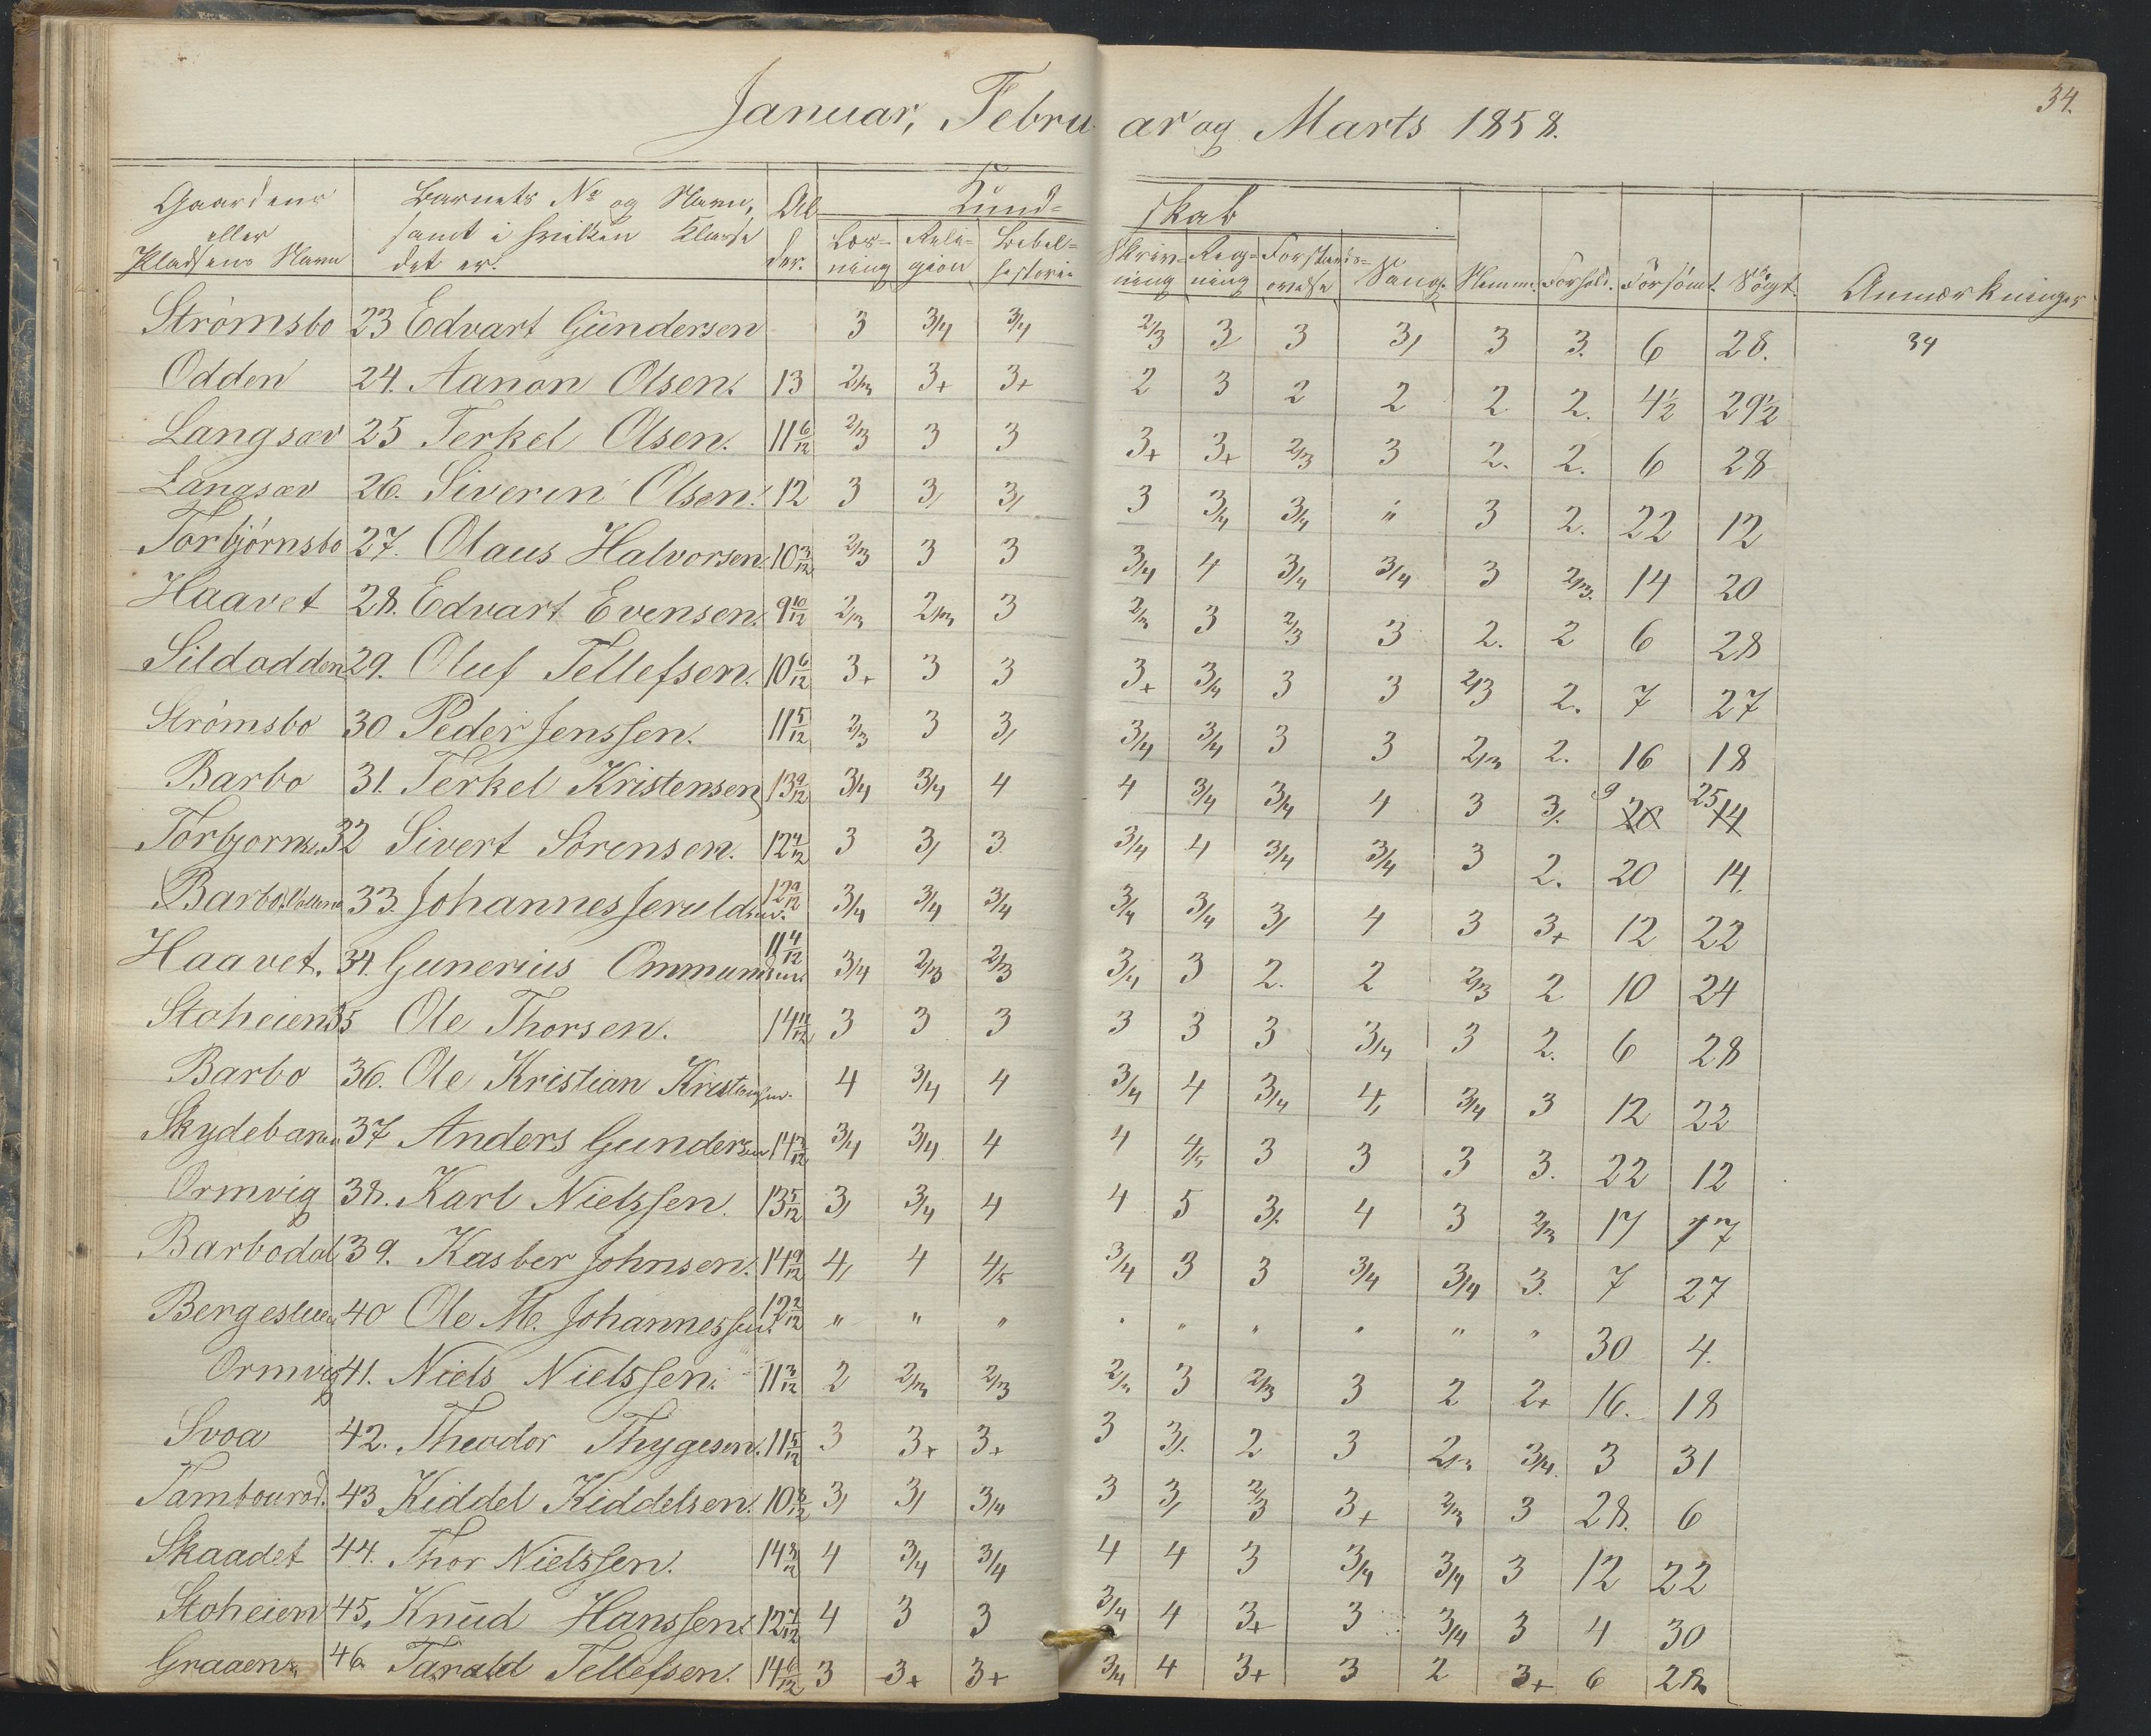 34.
Januar, Februar og Marts 1858.
Gaardens eller Pladsens Navn | Barnets No og Navn, samt i hvilken Klasse det er. | Alder. | Kundskab
Læsning | Religion | Bibelhistorie | Skrivning | Regning | Forstandsøvelse | Sang. | Nemme. | Forhold. | Forsømt. | Søgt. | Anmærkninger
Strømsbo 23 Edvart Gündersen 3 3/4 3/4 2/3 3, 3 3, 3 3. 6 28. 34
Odden 24. Aanon Olsen. 13 2/3 3+ 3+ 2 3 2 2 2 2. 4½ 29½
Langsæv 25 Terkel Olsen. 11 6/12 2/3 3 3 3+ 3+ 2/3 3 2. 2. 6 28
Langsæv 26. Siverin Olsen. 12 3 3, 3, 3 3/4 3/4 " 3 2. 22 12
Torbjørnsbo 27. Olaus Halvorsen. 10 3/12 2/3 3 3 3/4 4 3/4 3/4 3 2/3. 14 20
Haavet 28. Edvart Evensen. 9 10/12 2/3 2/3 3 2/3 3 2/3 3 2. 2 6 28
Sildodden 29. Oluf Tellefsen. 10 6/12 3+ 3 3 3+ 3/4 3 3 2/3 2. 7 27
Strømsbo 30 Peder Jenssen. 11 5/12 2/3 3 3, 3/4 3/4 3 3 2/3 2. 16 18
Barbo 31. Terkel Kristensen 13 9/12 3/4 3/4 4 4 3/4 3/4 4 3 3, 9 20 25 14
Torbjørns. 32 Sivert Sörensen. 12 4/12 3 3, 3 3/4 4 3/4 3/4 3 2. 20 14.
Barbo 33. Johannes Jeruldsen. 12 9/12 3/4 3/4 3/4 3/4 3/4 3, 4 3 3+ 12 22
Haavet. 34. Gunerius Ommundsen. 11 4/12 3/4 2/3 2/3 3/4 3 2. 2 2/3 2 10 24
Stoheien 35 Ole Thorsen. 14 11/12 3 3 3 3 3 3 3/4 3 2. 6 28
Barbo 36. Ole Kristian Kristensen. 4 3/4 4 3/4 4 3/4 4, 3/4 3 12 22
Skydebanen 37 Anders Gundersen 14 3/12 3/4 3/4 4 4 4/5 3 3 3 3. 22 12
Ormvig 38. Karl Nielssen. 13 5/12 3, 3/4 4 4 5 3, 4 3 2/3 17 17
Barbodal 39. Kasber Johnsen. 14 9/12 4, 4 4/5 3/4 3 3 3/4 3/4 3. 7 27
40 Ole M. Johannessen. 12 2/12 " " " " " " " " " 30 4.
Ormvig 41. Niels Nielssen. 11 3/12 2 2/3 2/3 2/3 3 2/3 3 2 2+ 16. 18
Svoa 42. Theodor Thygesen. 11 5/12 3 3+ 3+ 3 3, 2 3 2/3 3/4. 3 31
Tambourod. 43 Kiddel Kiddelsen. 10 8/12 3, 3, 3/4 3 3, 2/3 3+ 2/3 3 28. 6
Skaadet 44. Thor Nielssen. 14 8/12 4 3/4 3/4 4 4 3 3/4 3/4 3 12 22
Stoheien 45. Knud Hanssen. 12 7/12 4 3 3 3/4 4 3+ 3 3/4 3 4 30
Graaen. 46 Tarald Tellefsen. 14 6/12 3 3+ 3+ 3/4 4 3+ 3 2 3+ 6 28